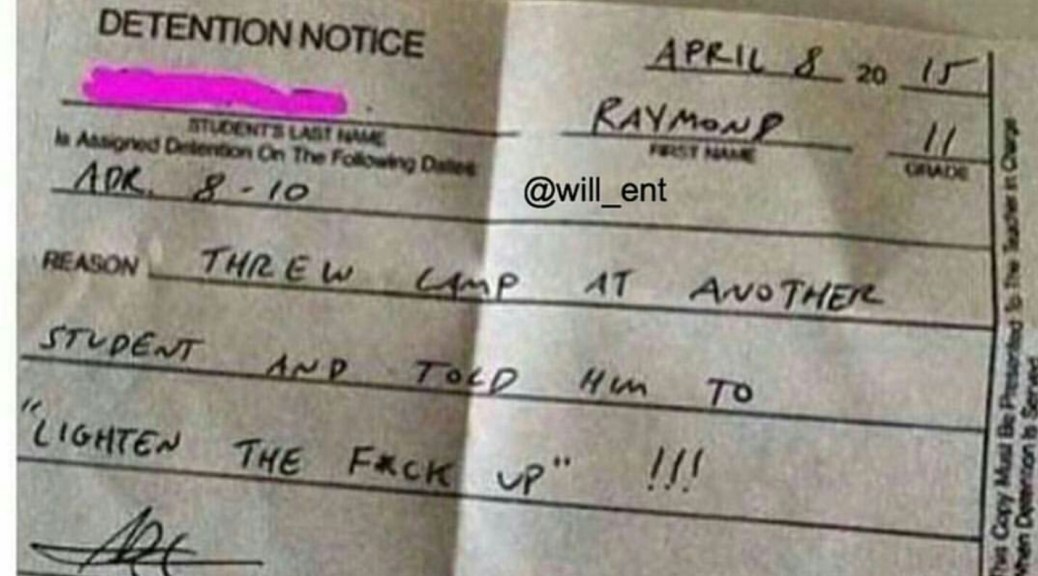 DETENTION NOTICE
APRIL 8 20 15
STUDENT'S LAST NAME
RAYMOND 11
FIRST NAME GRADE
Is Assigned Detention On The Following Dates
APR. 8-10
@will_ent
REASON THREW LAMP AT ANOTHER
STUDENT AND TOLD HIM TO
"LIGHTEN THE F*CK UP" !!!
This Copy Must Be Presented To The Teacher in Charge
When Detention Is Served